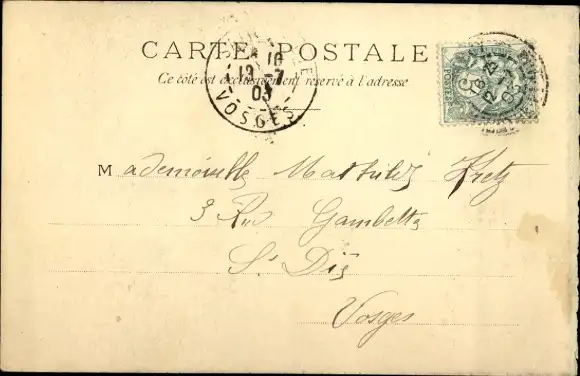 CARTE POSTALE
Ce côté est exclusivement réservé à l'adresse
10
13 -7
03
VOSGES
Mademoiselle Mathilde Kretz
3 Rue Gambetta
St Dié
Vosges